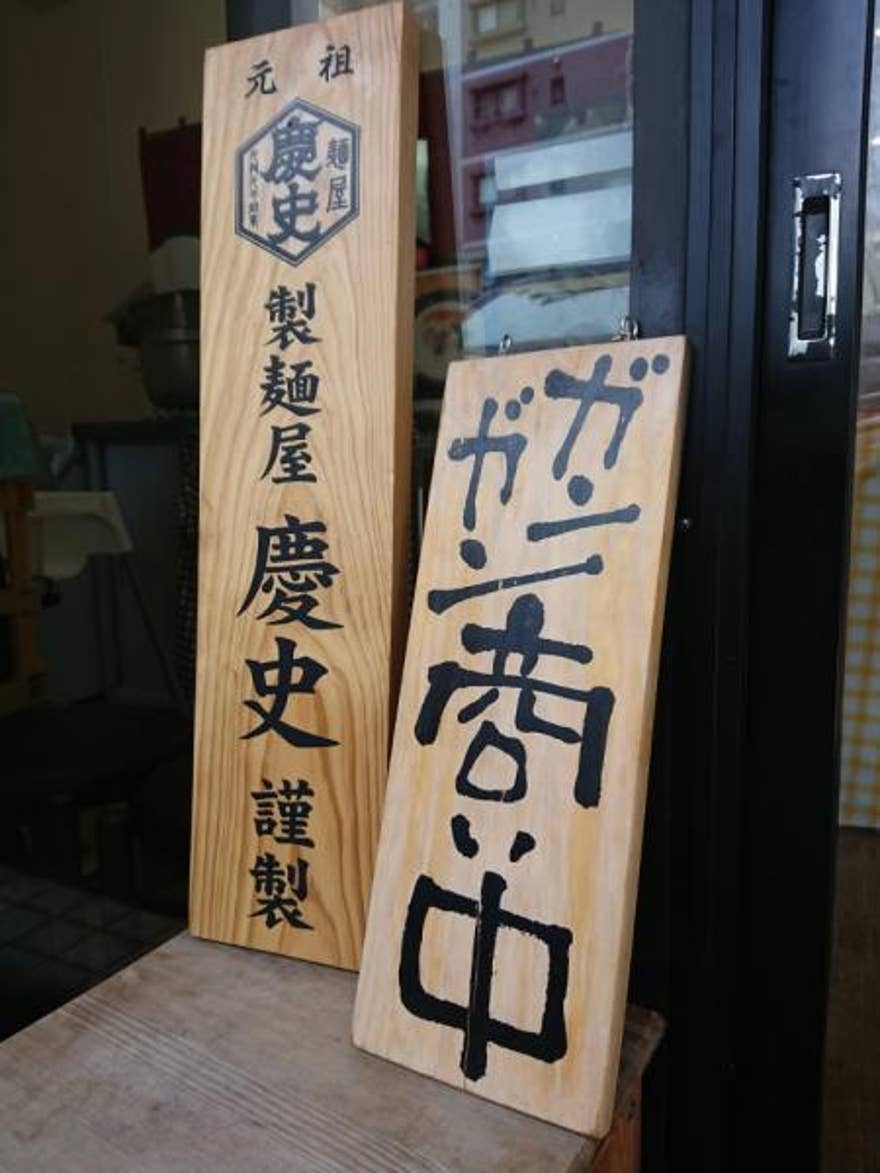 元祖
麺屋
慶史
製麺屋
慶史
謹製
ガンガン
商い中